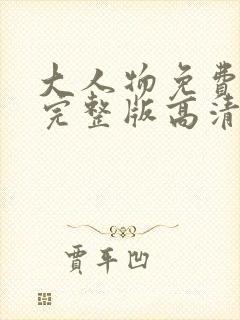 大人物免費
完整版高清
賈平凹